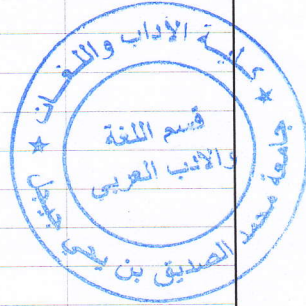 كلية الآداب واللغات
قسم اللغة
والأدب العربي
جامعة محمد الصديق بن يحي جيجل